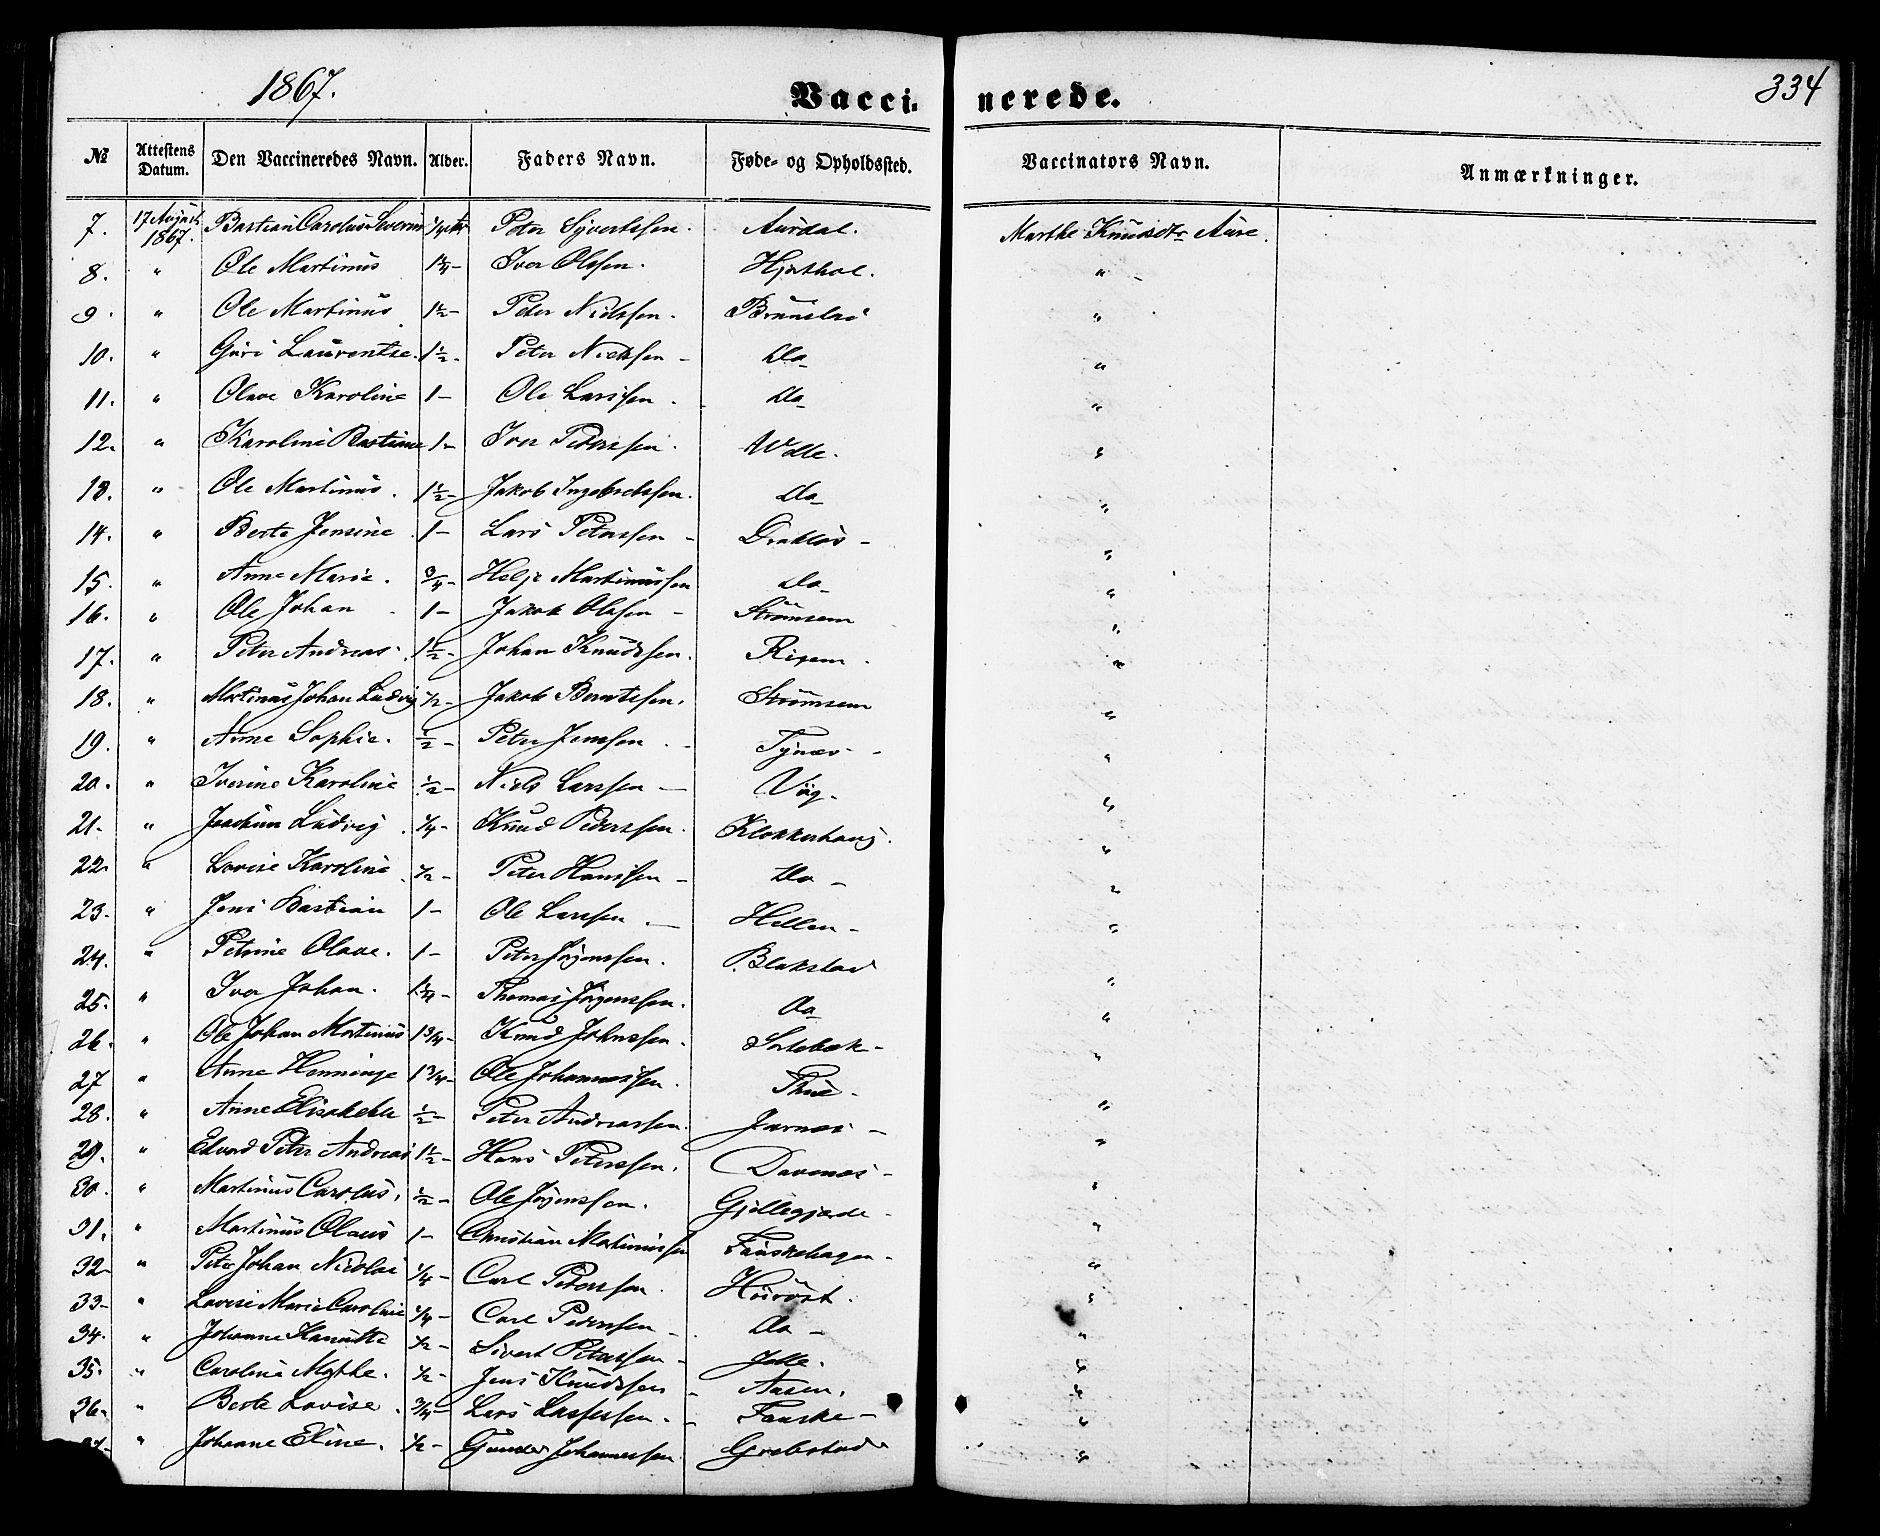 1867.
Vacci- nerede.
334
№ Attestens Datum. Den Vaccineredes Navn. Alder. Faders Navn. Føde- og Opholdssted. Vaccinators Navn. Anmærkninger.
7. 17 August 1867. Bastian Carolus Severin 1/4 Peter Sjvertssen. Aurdal. Marthe Knudsdtr Aure.
8. " Ole Martinus Iver Olssen. Hjorthol. "
9. " Ole Martinus 1½ - Peter Nielssen. "
10. " Guri Laurentse. 1½ - Peter Nielssen - Do - "
11. " Olave Karoline 1 - Ole Larssen. Do - "
12. " Karoline Bastiane 1 - Iver Pederssen. Velle. "
13. " Ole Martinus. 1½ - Jakob Ingebretssen. Do - "
14. " Berte Jensine 1 - Lars Peterssen - "
15. " Anne Marie. 3/4 - Helje Martinussen Do - "
16. " Ole Johan - 1 - Jakob Olssen - Strømsem "
17. " Peter Andreas 1½ - Johan Knudssen. Risem. "
18. " Martinus Johan Ludvig 1/2 - Jakob Berntssen. Strømsem "
19. " Anne Sophie. ½ - Peter Jenssen - Tynæs - "
20. " Iverine Karoline ½ - Niels Larssen - Vög - "
21. " Joachim Ludvig 1/4 - Knud Pederssen. Klokkerhaug. "
22. " Lovise Karoline 1/2 - Peter Hanssen - Do - "
23. " Jens Bastian 1 - Ole Larssen - Hellen - "
24. " Petrine Olave. 1 - Peter Jørgenssen. Blakstad "
25. " Iver Johan. Thomas Jørgenssen. Do "
26. " Ole Johan Martinus 1 3/4 - Knud Johnssen. "
27 " Anne Henninge 1 3/4 - Ole Johannessen. Thue - "
28. " Anne Elisabeth ½ - Peter Andreassen. Jarnes - "
29. " Edvard Peter Andreas 1½ - Hans Peterssen. Davenes - "
30. " Martinus Carolus. ½ - Ole Jørgenssen. Gjellegjærde - "
31. " Martinus Olaus 1 - Christian Martinussen Fauskehagen - "
32 - " Peter Johan Nicolai 1/4 - Carl Peterssen. "
33 - " Lovise Marie Caroline 1/4 - Carl Pederssen - Do - "
34. " Johanne 1/2 - Sivert Peterssen - "
35. " Caroline 1/2 - Jens Knudssen - Aasen. "
36. " Berte Lovise. 3/4 - Lars Fauske - "
" Johanne Eline. 1/2 - Gunder Johannessen Grebstad "